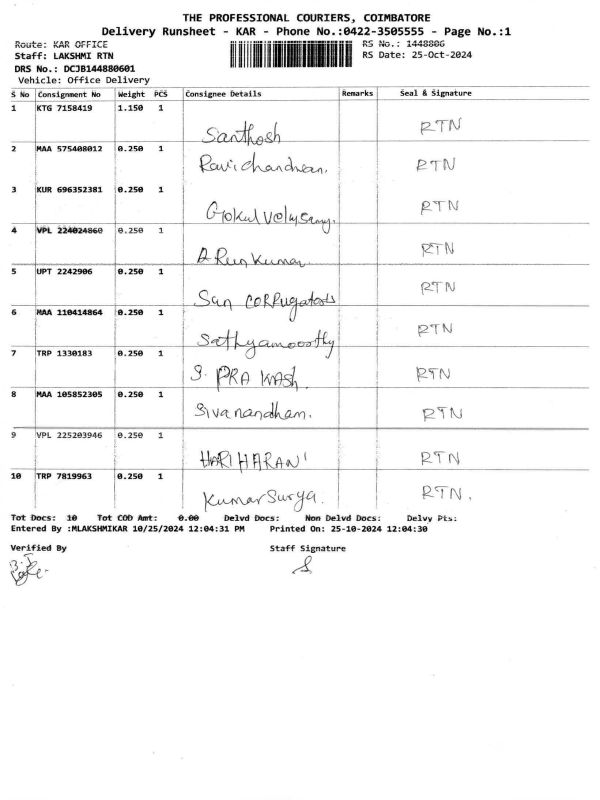 THE PROFESSIONAL COURIERS, COIMBATORE
Delivery Runsheet - KAR - Phone No.:0422-3505555 - Page No.:1
Route: KAR OFFICE RS No.: 1448806
Staff: LAKSHMI RTN RS Date: 25-Oct-2024
DRS No.: DCJB144880601
Vehicle: Office Delivery
S No Consignment No Weight PCS Consignee Details Remarks Seal & Signature
1 KTG 7158419 1.150 1 Santhosh RTN
2 MAA 575408012 0.250 1 Ravichandran. RTN
3 KUR 696352381 0.250 1 Gokul Velusamy. RTN
4 VPL 224024860 0.250 1 A Run Kumar. RTN
5 UPT 2242906 0.250 1 Sun CORRugators RTN
6 MAA 110414864 0.250 1 Sathyamoorthy RTN
7 TRP 1330183 0.250 1 S. PRAKASH. RTN
8 MAA 105852305 0.250 1 Sivanandham. RTN
9 VPL 225203946 0.250 1 HARIHARAN RTN
10 TRP 7819963 0.250 1 Kumar Surya. RTN.
Tot Docs: 10 Tot COD Amt: 0.00 Delvd Docs: Non Delvd Docs: Delvy Pts:
Entered By :MLAKSHMIKAR 10/25/2024 12:04:31 PM Printed On: 25-10-2024 12:04:30
Verified By Staff Signature